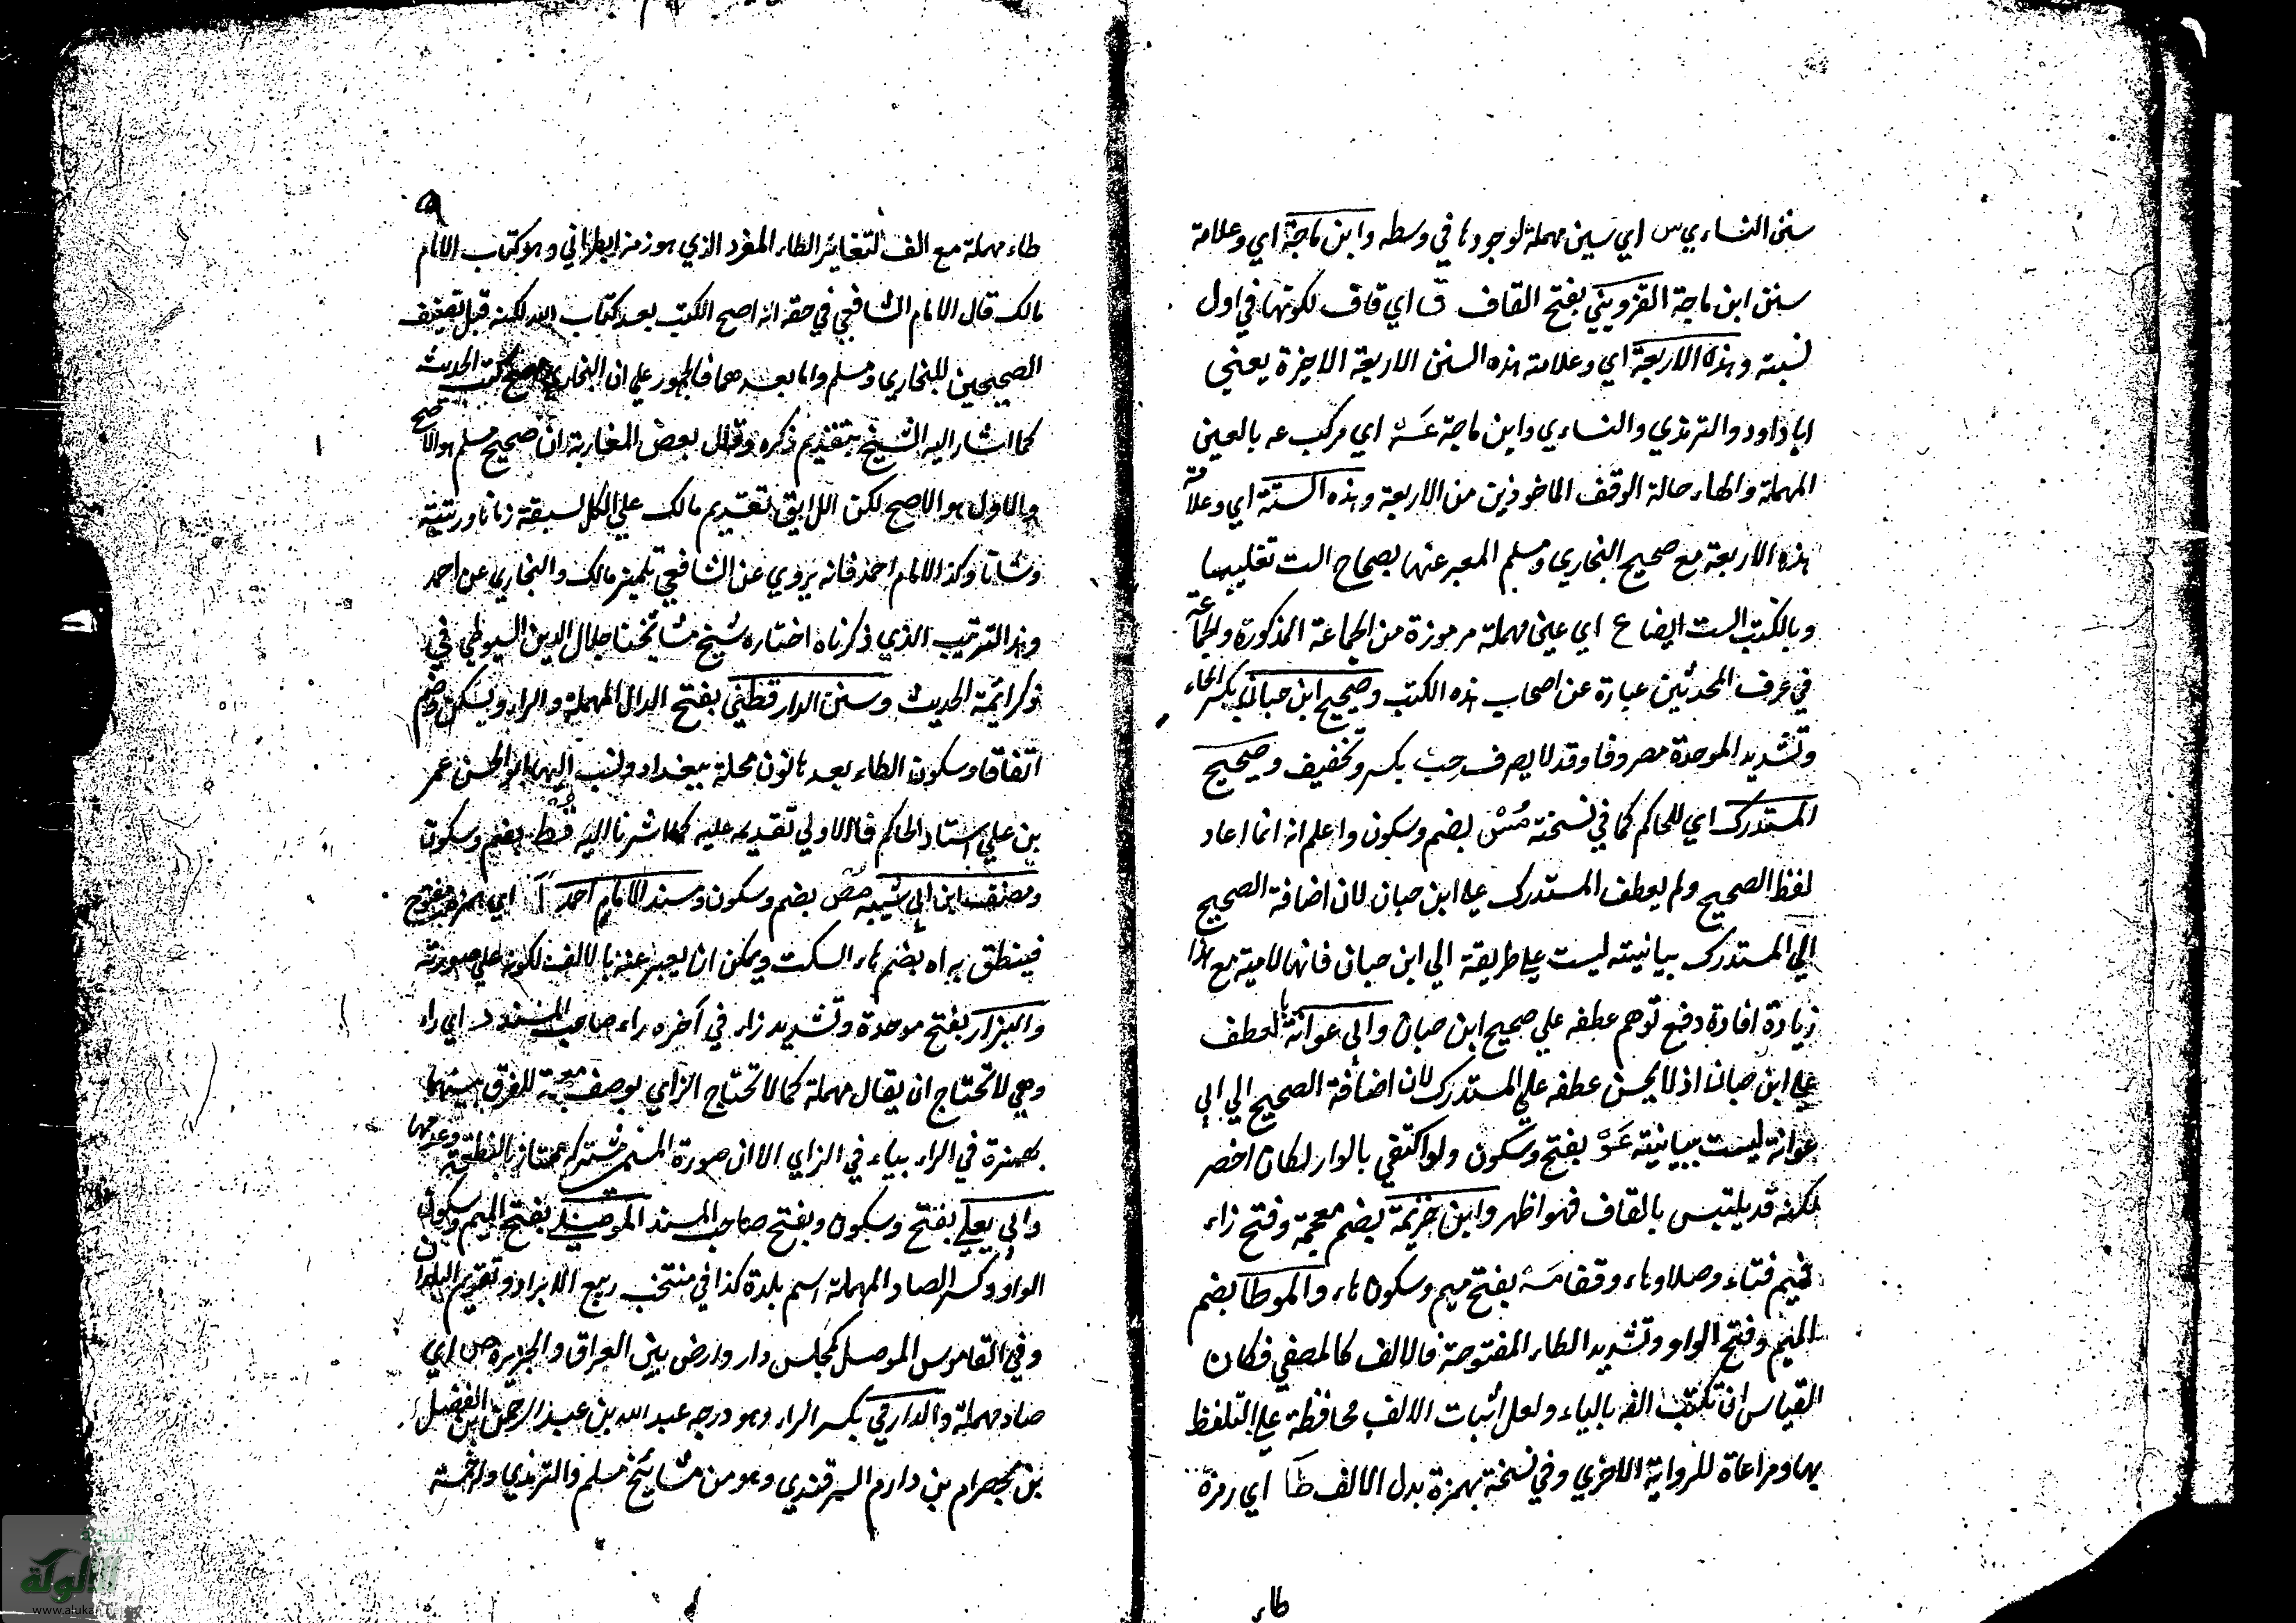 سنن النساءي س اي سين مهملة لوجودها في وسطه وابن ماجة اي وعلامة
سنن ابن ماجة القزويني بفتح القاف ق اي قاف لكونها في اول
نسبته وهذه الاربعة اي وعلامة هذه السنن الاربعة الاخيرة يعني
ابا داود والترمذي والنساءي وابن ماجة عه اي مركب عه بالعين
المهملة والهاء حالة الوقف الماخوذين من الاربعة وهذه الستة اي وعلامة
هذه الاربعة مع صحيح البخاري ومسلم المعبر عنها بصحاح الست تغليبا
وبالكتب الست ايضا ع اي عين مهملة مرموزة من الجماعة المذكورة والجماعة
في عرف المحدثين عبارة عن اصحاب هذه الكتب وصحيح ابن حبان بكسر الحاء
وتشديد الموحدة مصروفا وقد لا يصرف حب بكسر وتخفيف وصحيح
المستدرك اي للحاكم كما في نسخته مس بضم وسكون واعلم انه انما اعاد
لفظ الصحيح ولم يعطف المستدرك على ابن حبان لان اضافة الصحيح
الي المستدرك بيانيته ليست على طريقة الي ابن حبان فانها لامية مع هذا
زيادة افادة دفع توهم عطفه علي صحيح ابن حبان وابي عوانة بالعطف
على ابن حبان اذ لا يحسن عطفه علي المستدرك لان اضافة الصحيح الي ابي
عوانة ليست ببيانيته عو بفتح وسكون ولو اكتفي بالواو لكان اخصر
لكنه قد يلتبس بالقاف فهو اظهر وابن خزيمة بضم معجمة وفتح زاء
فميم فتاء وصلا وهاء وقفا مه بفتح ميم وسكون هاء والموطا بضم
الميم وفتح الواو وتشديد الطاء المفتوحة فالالف كالمصفي فكان
القياس ان تكتب الفه بالياء ولعل اثبات الالف محافظة على التلفظ
بها ومراعاة للرواية الاخري وفي نسخة بهمزة بدل الالف طا اي رمزه
طاء
طاء مهملة مع الف لتغاير الطاء المفرد الذي هو رمز الطبراني وهو كتاب الامام
مالك قال الامام الشافعي في حقه انه اصح الكتب بعد كتاب الله لكنه قبل تصنيف
الصحيحين للبخاري ومسلم واما بعدهما فالجمهور علي ان البخاري اصح كتب الحديث
كما اشار اليه الشيخ بتقديم ذكره وقال بعض المغاربة ان صحيح مسلم هو الاصح
والاول هو الاصح لكن اللايق تقديم مالك علي الكل لسبقه زمانا ورتبته
وشانا وكذا الامام احمد فانه يروي عن الشافعي تلميذ مالك والبخاري عن احمد
وهذا الترتيب الذي ذكرناه اختاره شيخ مشائخنا جلال الدين السيوطي في
ذكر ائمة الحديث وسنن الدارقطني بفتح الدال المهملة والراء ويسكن وضم
اتفاقا وسكون الطاء بعدها نون محلة ببغداد ونسب اليها ابو الحسن عمر
بن علي استاد الحاكم فالاولي تقديمه عليه كما اشرنا اليه قط بضم وسكون
ومصنف ابن ابي شيبة مص بضم وسكون ومسند الامام احمد ا اي همزة مفتوح
فينطق به اه بضم هاء السكت ويمكن ان يعبر عنه بالالف لكونه علي صورته
والبزار بفتح موحدة وتشديد زاء في آخره راء صاحب المسند ر اي راء
وهي لا تحتاج ان يقال مهملة كما لا تحتاج الزاي بوصف معجمة للفرق بينهما
بهمزة في الراء بياء في الزاي الا ان صورة المسمى مشتركة ممتاز بالنطقة وعدمها
وابي يعلي بفتح وسكون وبفتح صاحب المسند الموصلي بفتح الميم وسكون
الواو وكسر الصاد المهملة اسم بلدة كذا في منتخب ربيع الابرار وتقويم البلدان
وفي القاموس الموصل كمجلس دار وارض بين العراق والجزيرة ص اي
صاد مهملة والدارمي بكسر الراء وهو درجه عبد الله بن عبد الرحمن بن الفضيل
بن بهرام بن دارم السمرقندي وهو من مشائخ مسلم والترمذي ولخمسة